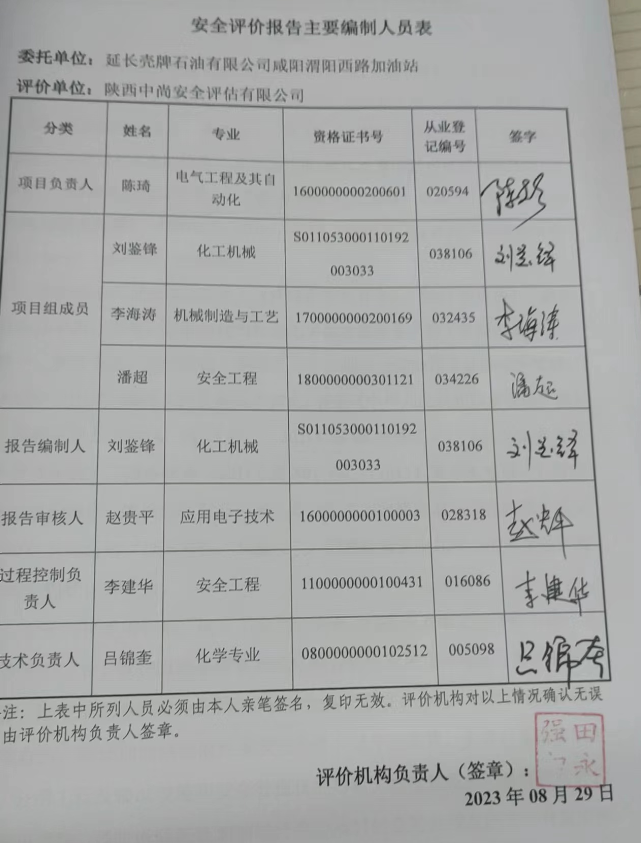 安全评价报告主要编制人员表
委托单位：延长壳牌石油有限公司咸阳渭阳西路加油站
评价单位：陕西中尚安全评估有限公司
分类 姓名 专业 资格证书号 从业登记编号 签字
项目负责人 陈琦 电气工程及其自动化 1600000000200601 020594
项目组成员 刘鉴锋 化工机械 S011053000110192003033 038106 刘鉴锋
李海涛 机械制造与工艺 1700000000200169 032435 李海涛
潘超 安全工程 1800000000301121 034226 潘超
报告编制人 刘鉴锋 化工机械 S011053000110192003033 038106 刘鉴锋
报告审核人 赵贵平 应用电子技术 1600000000100003 028318
过程控制负责人 李建华 安全工程 1100000000100431 016086 李建华
技术负责人 吕锦奎 化学专业 0800000000102512 005098 吕锦奎
注：上表中所列人员必须由本人亲笔签名，复印无效。评价机构对以上情况确认无误
由评价机构负责人签章。
评价机构负责人（签章）：
田永强
2023 年 08 月 29 日